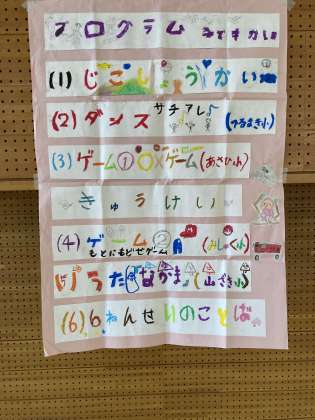 プログラム
(1) じこしょうかい
(2) ダンス サチアレ♪ (つるまき小)
(3) ゲーム① ○×ゲーム (あさひ小)
きゅうけい
(4) ゲーム② (みしゅく小)
もとにもどせゲーム
(5) うた なかま (山ざき小)
(6) 6ねんせいのことば